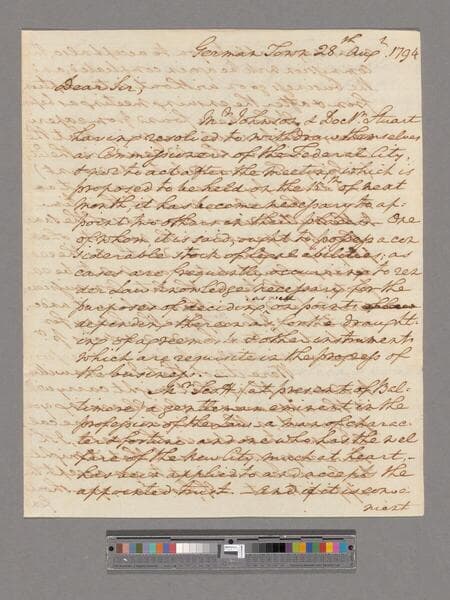 German Town 28th Augt. 1794
Dear Sir,
Mr. Johnson & Doctr. Stuart
having resolved to withdraw themselves
as Commissioners of the Federal City,
& not to act after the meeting which is
proposed to be held on the 15th of next
month it has become necessary to ap-
point two others in their places. One
of whom, it is said, ought to possess a con
siderable stock of legal abilities; as
cases are frequently occurring to ren
der Law knowledge necessary for the
as well
purposes of deciding on points
depending thereon as for the draught-
ing of agreements & other instruments
which are requisite in the progress of
the business. —
Mr. Scott (at present of Bal-
timore) a gentleman eminent in the
profession of the Law a man of charac-
ter & fortune and one who has the wel
fare of the New City much at heart,
has been applied to and accepts the
appointed trust. — and if it is conve
nient